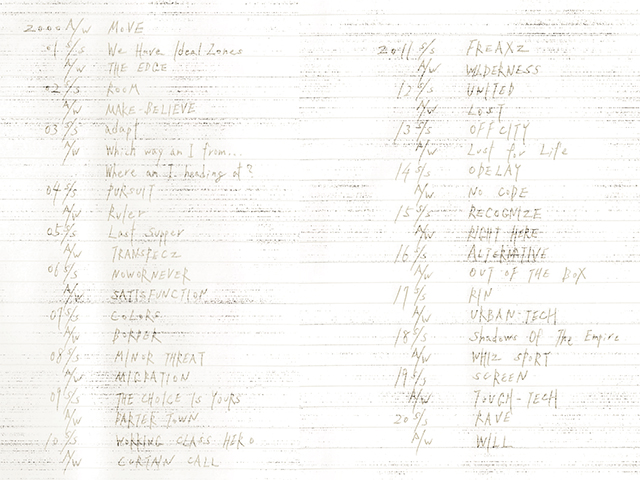 2000 A/W MOVE
01 S/S We Have Ideal Zones
A/W THE EDGE
02 S/S ROOM
A/W MAKE-BELIEVE
03 S/S adapt.
A/W Which way am I from...
Where am I heading of?
04 S/S PURSUIT
A/W Ruler
05 S/S Last Supper
A/W
06 S/S NOWORNEVER
A/W SATISFUNCTION
07 S/S COLORS
A/W BORDER
08 S/S MINOR THREAT
A/W MIGRATION
09 S/S THE CHOICE IS YOURS
A/W BARTER TOWN
10 S/S WORKING CLASS HERO
A/W CURTAIN CALL
2011 S/S FREAXZ
A/W WILDERNESS
12 S/S UNITED
A/W LUST
13 S/S OFF CITY
A/W Lust for Life
14 S/S ODELAY
A/W NO CODE
15 S/S RECOGNIZE
A/W RIGHT HERE
16 S/S ALTERNATIVE
A/W OUT OF THE BOX
17 S/S KIN
A/W URBAN-TECH
18 S/S Shadows Of The Empire
A/W WHIZ SPORT
19 S/S SCREEN
A/W TOUGH-TECH
20 S/S RAVE
A/W WILL